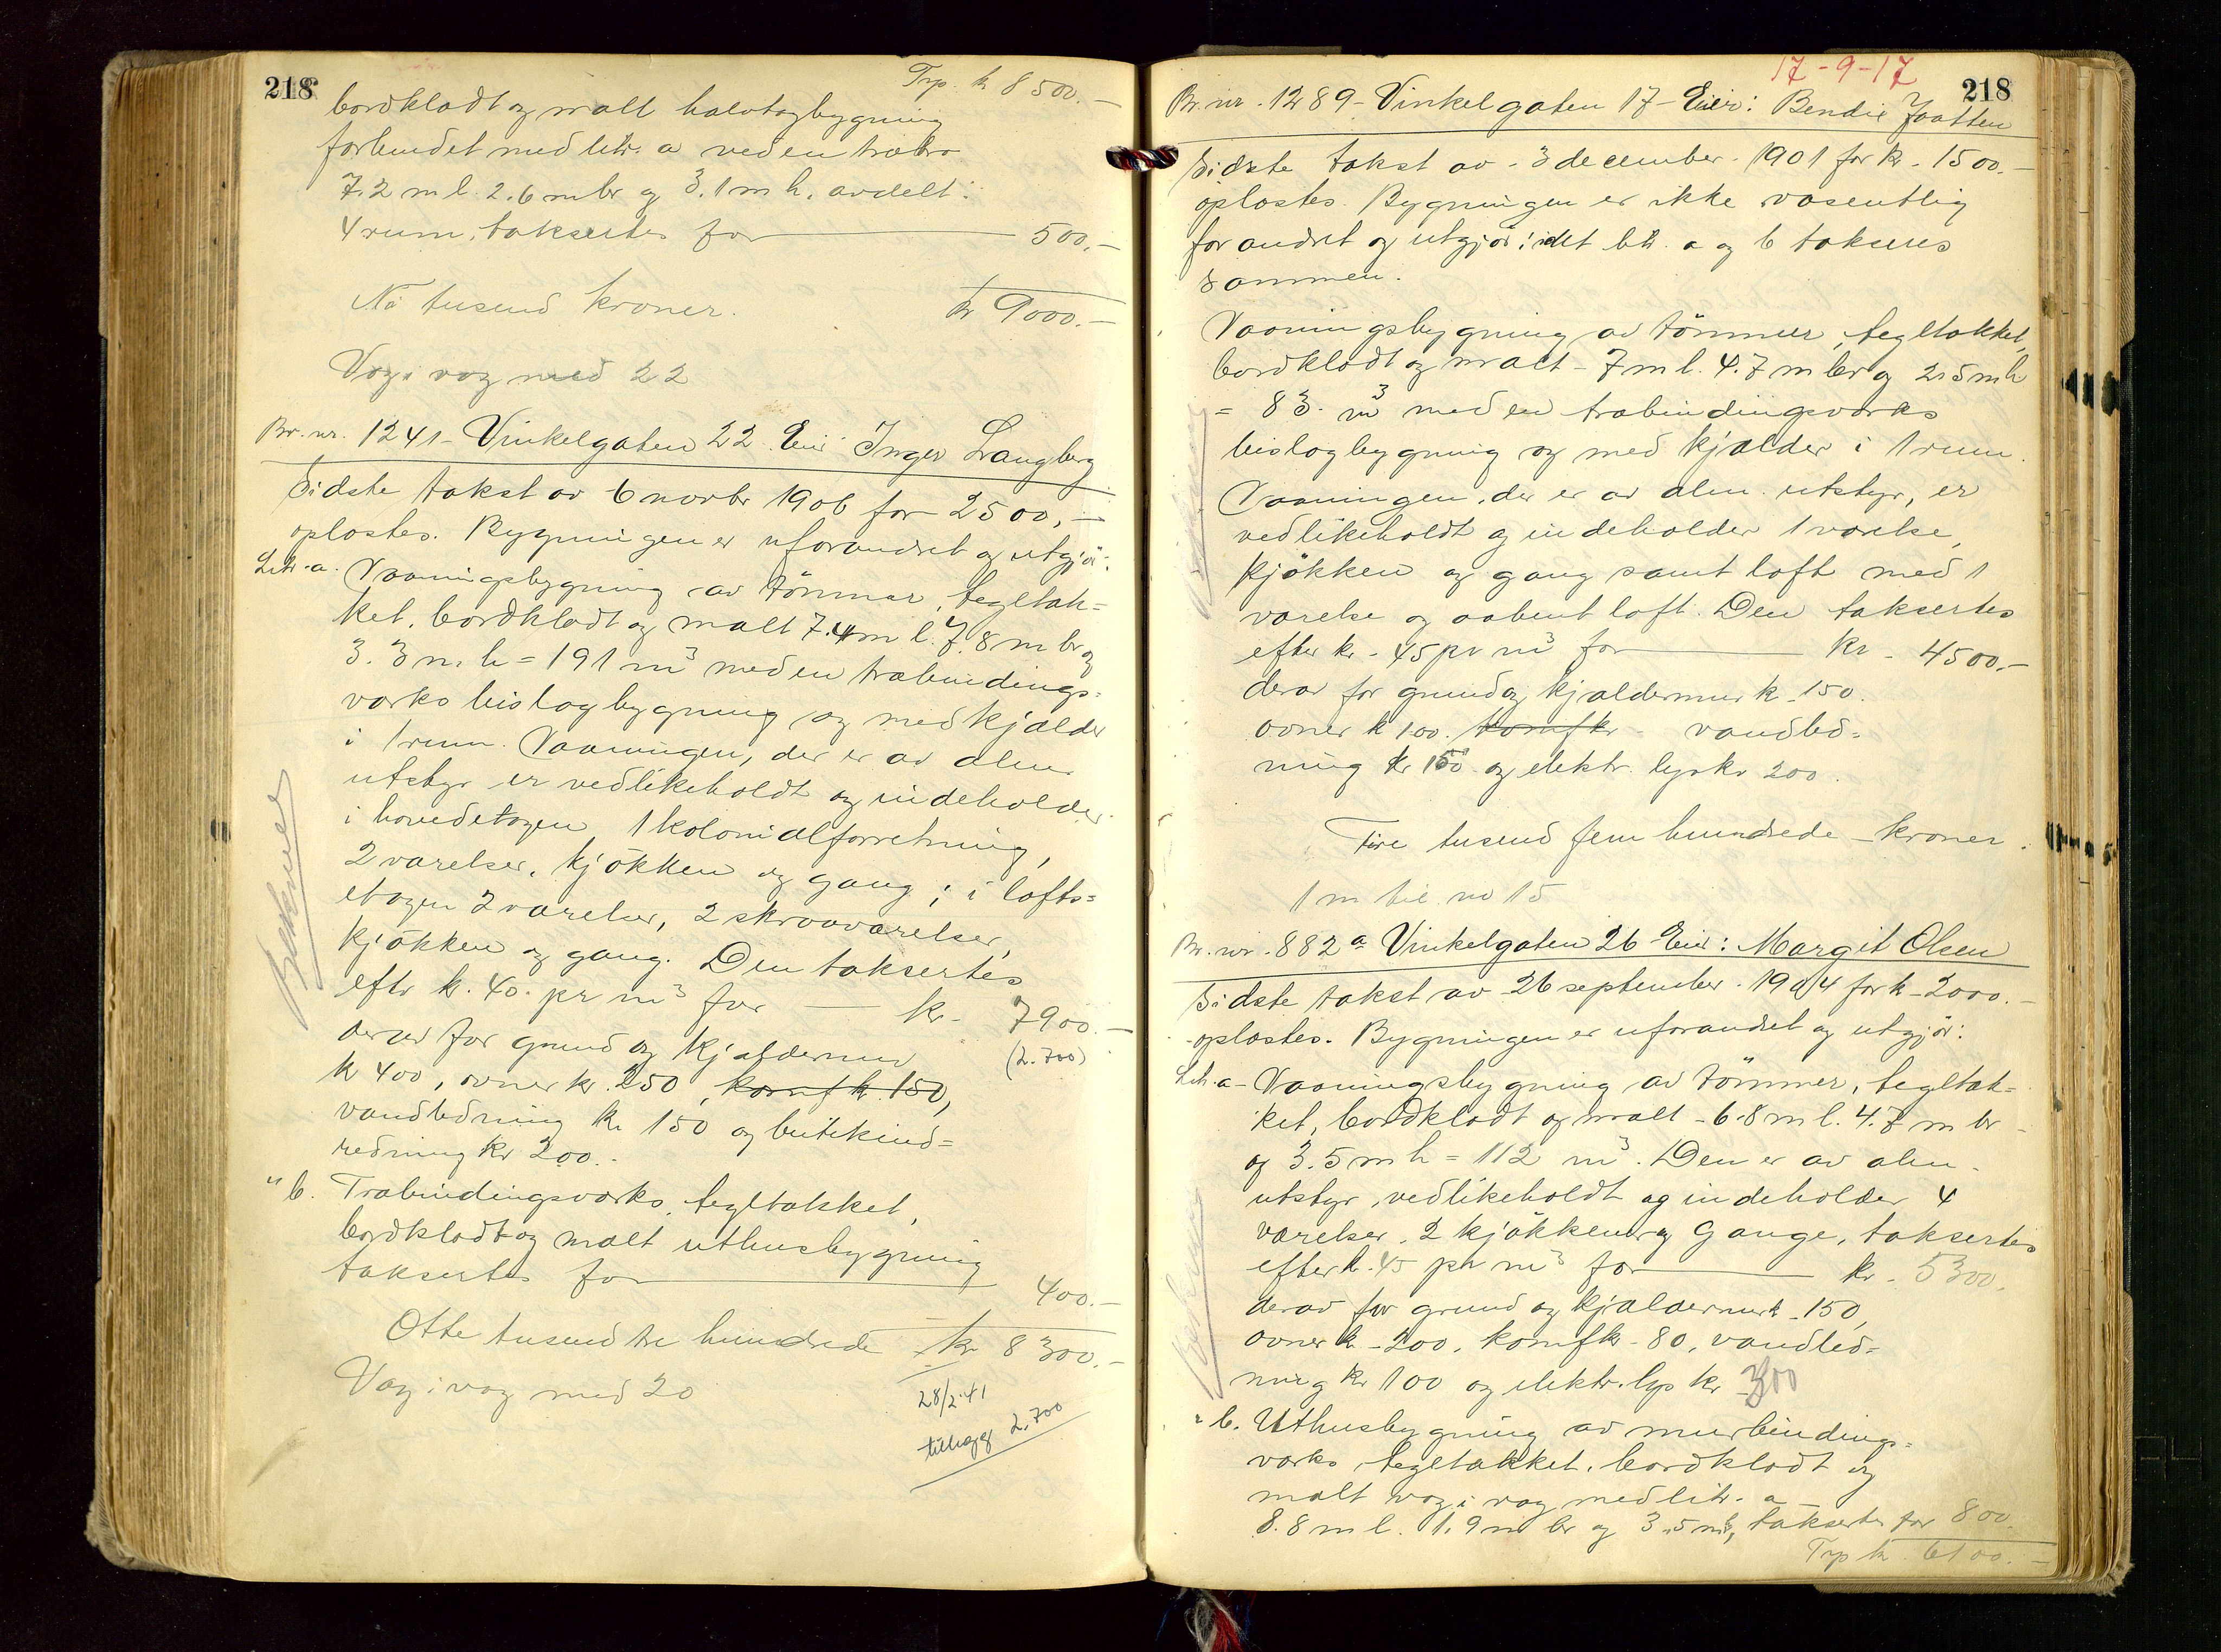 218
Trp. kr 8500.-
bordklædt og malt halvtagbygning
forbundet med litr. a ved en træbro
7.2 m l. 2.6 m br og 3.1 m h. avdelt i
4 rum, taksertes for 500.-
Ni tusend kroner. kr 9000.-
Væg i væg med 22
Br. nr. 1241 - Vinkelgaten 22 Eier Inger Langberg
Sidste takst av 6 novbr 1906 for 2500,-
oplæstes. Bygningen er uforandret og utgjör:
Litr. a. Vaaningsbygning av tömmer, tegltæk=
ket, bordklædt og malt 7.4 m l. 7.8 m br og
3.3 m h = 191 m³ med en træbindings=
værks bislagbygning og med kjælder
i 1 rum. Vaaningen, der er av alm.
utstyr er vedlikeholdt og indeholder
i hovedetagen 1 kolonialforretning,
2 værelser, kjökken og gang; i lofts=
etagen 2 værelser, 2 skraaværelser,
kjökken og gang. Den taksertes
eftr kr. 40. pr m³ for kr. 7900.-
derav for grund og kjældermur (2.700)
kr 400, ovner kr. 250, komf kr. 150,
vandledning kr 150 og butikind=
redning kr 200.-
" b. Træbindingsværks, tegltækket,
bordklædt og malt uthusbygning
taksertes for 400.-
Otte tusend tre hundrede kr 8300.-
Væg i væg med 20
28/2-41
tillegg 2.700
17-9-17
218
Br. nr. 1289 - Vinkelgaten 17 - Eier: Bendix Jaatten
Sidste takst av 3 december 1901 for kr. 1500.-
oplæstes. Bygningen er ikke væsentlig
forandret og utgjör: idet litr. a og b takseres
sammen.
Vaaningsbygning av tömmer, tegltækket,
bordklædt og malt - 7 m l. 4.7 m br og 2.5 m h
= 83. m³ med en træbindingsværks
bislagbygning og med kjælder i 1 rum.
Vaaningen, der er av alm. utstyr, er
vedlikeholdt og indeholder 1 værelse,
kjökken og gang samt loft med 1
værelse og aabent loft. Den taksertes
efter kr. 45 pr m³ for kr. 4500.-
derav for grund og kjældermur kr. 150.
ovner kr 100. komf kr. vandled=
ning kr 150 og elektr. lys kr 200.
Fire tusend fem hundrede kroner.
1 m til no 15
Br. nr. 882ª Vinkelgaten 26 Eier: Margit Olsen
Sidste takst av 26 september 1904 for kr. 2000.-
oplæstes. Bygningen er uforandret og utgjör:
Litr. a - Vaaningsbygning av tömmer, tegltæk=
ket, bordklædt og malt - 6.8 m l. 4.7 m br
og 3.5 m h = 112 m³. Den er av alm.
utstyr, vedlikeholdt og indeholder 4
værelser, 2 kjökken og gange, taksertes
efter kr. 45 pr m³ for kr. 5300.
derav for grund og kjældermur kr. 150,
ovner kr. 200. komf kr. 80, vandled=
ning kr 100 og elektr. lys kr 300
" b. Uthusbygning av murbindings=
værks, tegltækket, bordklædt og
malt væg i væg med litr. a
8.8 m l. 1.9 m br og 3.5 m h, taksertes for 800.
Trp kr 6100.-